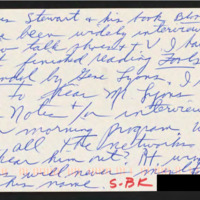 Stewart & his book Blood
been widely interviewed
talk shows & T.V. I have
finished reading Fools
by Gene Lyons. I
to hear Mr. Lyons
Notes &/or interview
morning program. W
all the networks
hear him out? At
will never
his name. S.BK